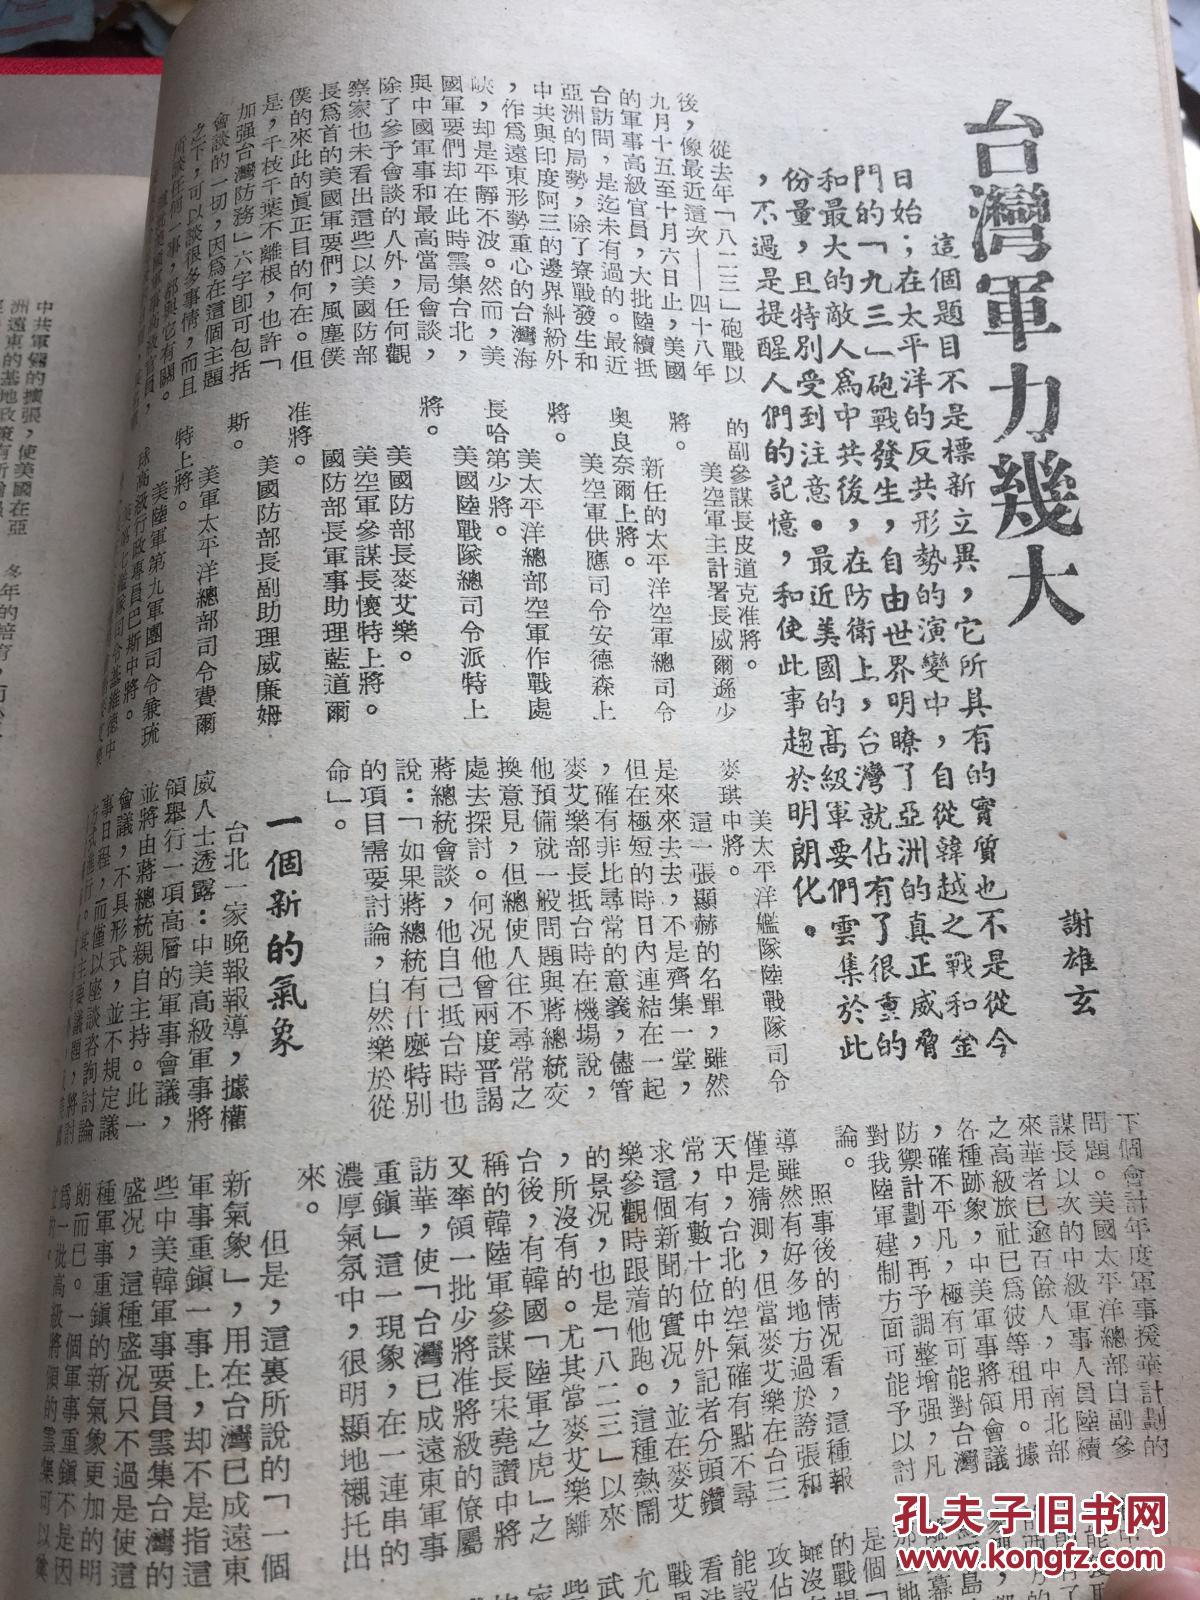 台灣軍力幾大
謝雄玄
這個題目不是標新立異，它所具有的實質也不是從今
日始；在太平洋的反共形勢的演變中，自從韓越之戰和金
門的「九三」砲戰發生，自由世界明瞭了亞洲的真正威脅
和最大的敵人為中共後，在防衛上，台灣就佔有了很重的
份量，且特別受到注意。最近美國的高級軍要們雲集於此
，不過是提醒人們的記憶，和使此事趨於明朗化。
從去年「八二三」砲戰以
後，像最近這次——四十八年
九月十五至十月六日止，美國
的軍事高級官員，大批陸續抵
台訪問，是迄未有過的。最近
亞洲的局勢，除了寮戰發生和
中共與印度阿三的邊界糾紛外
，作爲遠東形勢重心的台灣海
峽，却是平靜不波。然而，美
國軍要們却在此時雲集台北，
與中國軍事和最高當局會談，
除了參予會談的人外，任何觀
察家也未看出這些以美國防部
長爲首的美國軍要們，風塵僕
僕的來此的眞正目的何在。但
是，千枝千葉不離根，也許「
加强台灣防務」六字卽可包括
會談的一切，因爲在這個主題
之下，可以談很多事情，而且
所談任何一事，都與它有關。
的副參謀長皮道克准將。
美空軍主計署長威爾遜少
將。
新任的太平洋空軍總司令
奥良奈爾上將。
美空軍供應司令安德森上
將。
美太平洋總部空軍作戰處
長哈第少將。
美國陸戰隊總司令派特上
將。
美國防部長麥艾樂。
美空軍參謀長懷特上將。
國防部長軍事助理藍道爾
准將。
美國防部長副助理威廉姆
斯。
美軍太平洋總部司令費爾
特上將。
美陸軍第九軍團司令兼琉
球高級行政專員巴斯中將。
美太平洋艦隊陸戰隊司令
麥琪中將。
這一張顯赫的名單，雖然
是來來去去，不是齊集一堂，
但在極短的時日內連結在一起
，確有非比尋常的意義，儘管
麥艾樂部長抵台時在機場說，
他預備就一般問題與蔣總統交
換意見，但總使人往不尋常之
處去探討。何况他曾兩度晋謁
蔣總統會談，他自己抵台時也
說：「如果蔣總統有什麼特別
的項目需要討論，自然樂於從
命」。
一個新的氣象
台北一家晚報報導，據權
威人士透露：中美高級軍事將
領舉行一項高層的軍事會議，
並將由蔣總統親自主持。此一
會議，不具形式，並不規定議
事日程，而僅以座談咨詢討論
方式進行。其主要議題，將討
下個會計年度軍事援華計劃的
問題。美國太平洋總部自副參
謀長以次的中級軍事人員陸續
來華者已逾百餘人，中南北部
之高級旅社已爲彼等租用。據
各種跡象，中美軍事將領會議
，確不平凡，極有可能對台灣
防禦計劃，再予調整增强，凡
對我陸軍建制方面可能予以討
論。
照事後的情况看，這種報
導雖然有好多地方過於誇張和
僅是猜測，但當麥艾樂在台三
天中，台北的空氣確有點不尋
常，有數十位中外記者分頭鑽
求這個新聞的實況，並在麥艾
樂參觀時跟着他跑。這種熱鬧
的景况，也是「八二三」以來
，所沒有的。尤其當麥艾樂離
台後，有韓國「陸軍之虎」之
稱的韓陸軍參謀長宋堯讚中將
又率領一批少將准將級的僚屬
訪華，使「台灣已成遠東軍事
重鎮」這一現象，在一連串的
濃厚氣氛中，很明顯地襯托出
來。
但是，這裏所說的「一個
新氣象」，用在台灣已成遠東
軍事重鎮一事上，却不是指這
些中美韓軍事要員雲集台灣的
盛况，這種盛况只不過是使這
種軍事重鎮的新氣象更加的明
朗而已。一個軍事重鎮不是因
爲一批高級將領的雲集可以奠
立的。
中共軍備的擴張，使美國在亞
孔夫子旧书网
www.kongfz.com